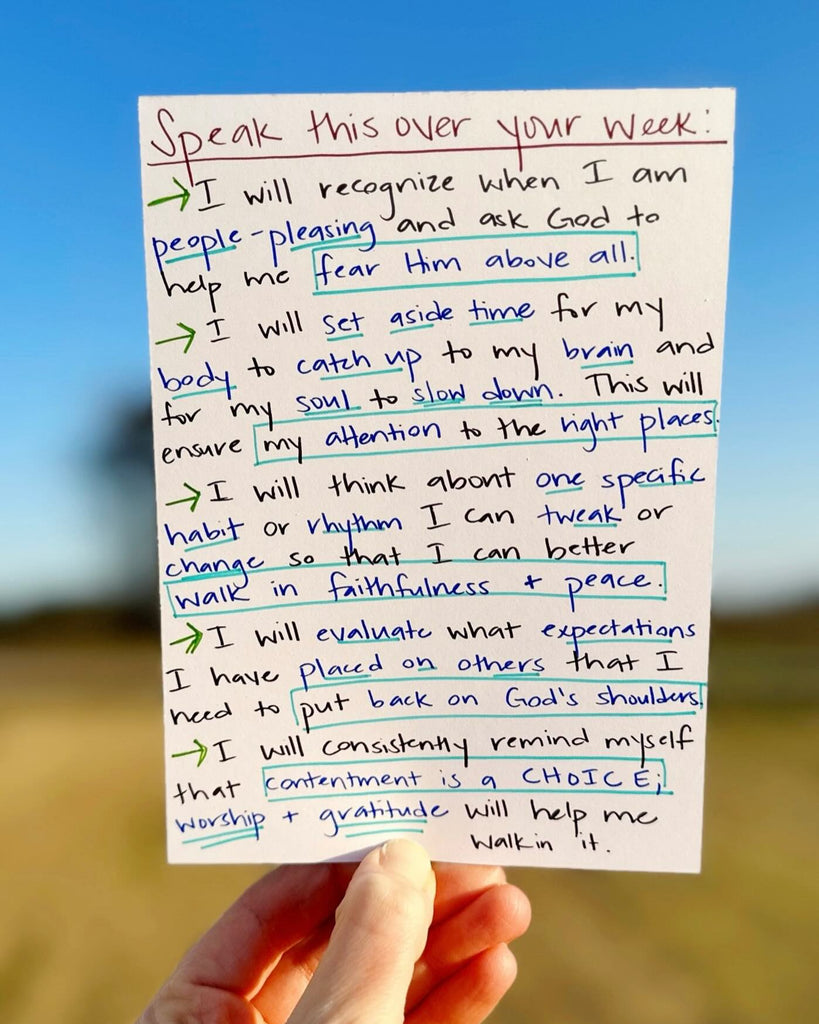 Speak this over your week:
→ I will recognize when I am
people-pleasing and ask God to
help me fear Him above all.
→ I will set aside time for my
body to catch up to my brain and
for my soul to slow down. This will
ensure my attention to the right places.
→ I will think about one specific
habit or rhythm I can tweak or
change so that I can better
walk in faithfulness + peace.
→ I will evaluate what expectations
I have placed on others that I
need to put back on God's shoulders.
→ I will consistently remind myself
that contentment is a CHOICE;
worship + gratitude will help me
walk in it.